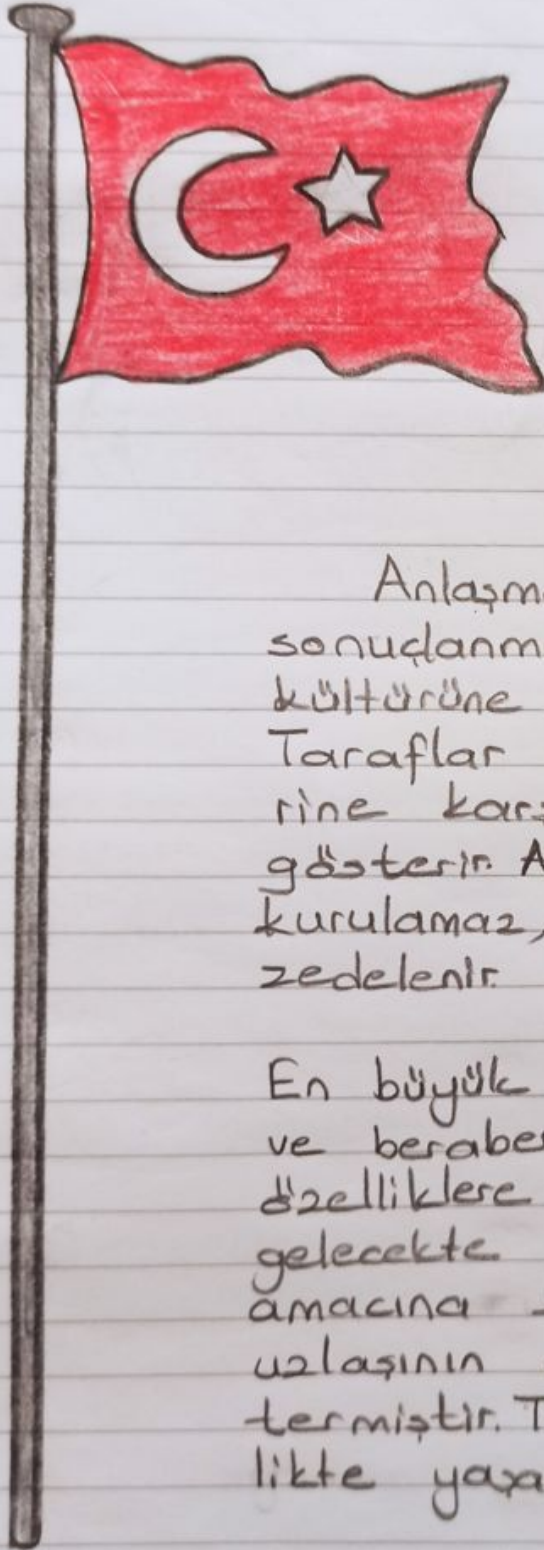 Anlaşm
sonuçlanm
kültürüne
Taraflar
rine karş
gösterir. A
kurulamaz,
zedelenir.
En büyük
ve beraber
özelliklere
gelecekte
amacına
uzlaşının
termiştir. T
likte yaşa